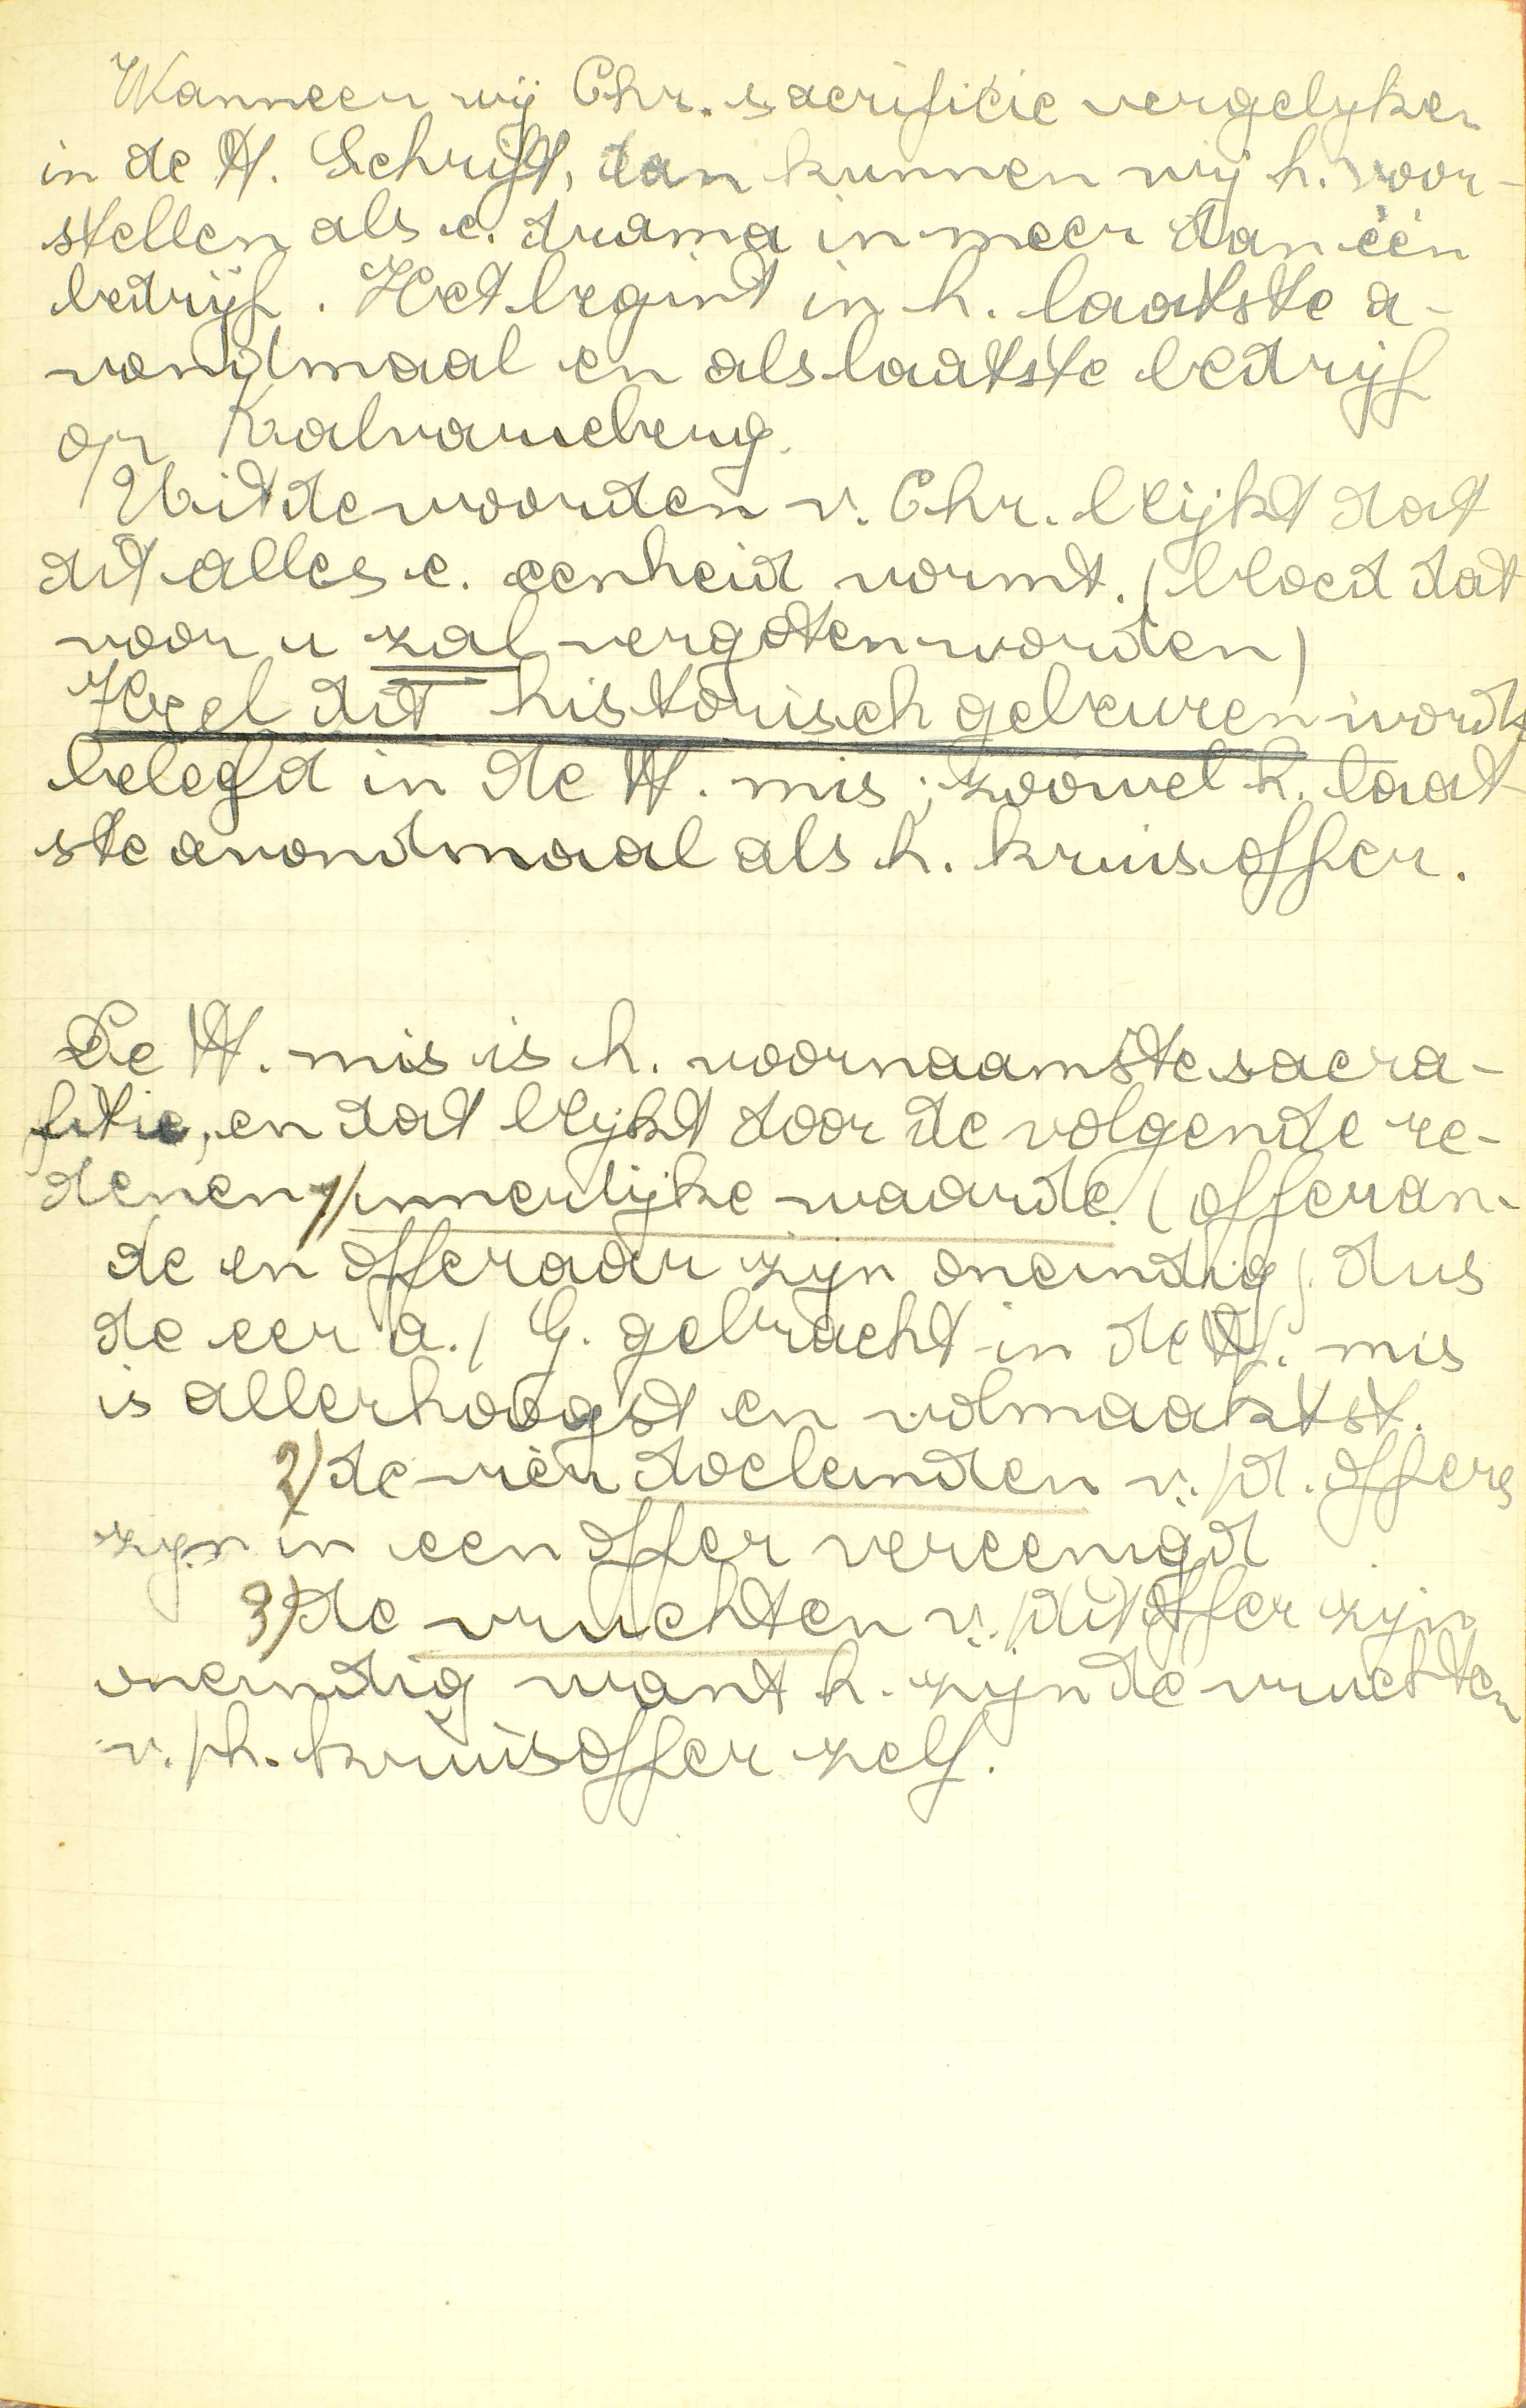 Wanneer wij Chr. sacrificie vergelyken
in de H. Schrift, dan kunnen wij h. voor-
stellen als e. drama in meer dan één
bedrijf. Het begint in h. laatste a-
vondmaal en als laatste bedrijf
op Kalvarieberg.
Uit de woorden v. Chr. blijkt dat
dit alles e. eenheid vormt. (bloed dat
voor u zal vergoten worden)
Heel dit historisch gebeuren wordt
beleefd in de H. mis; zoowel h. laat-
ste avondmaal als h. kruisoffer.
De H. mis is h. voornaamste sacra-
fitie, en dat blijkt door de volgende re-
denen 1) innerlijke waarde. (offeran-
de en offeraar zijn oneindig) dus
de eer a./ G. gebracht in de H. mis
is allerhoogst en volmaaktst.
2) de vier doeleinden v./d. offers
zijn in een offer vereenigd
3) de vruchten v./dit offer zijn
oneindig want h. zijn de vruchten
v./h. kruisoffer zelf.